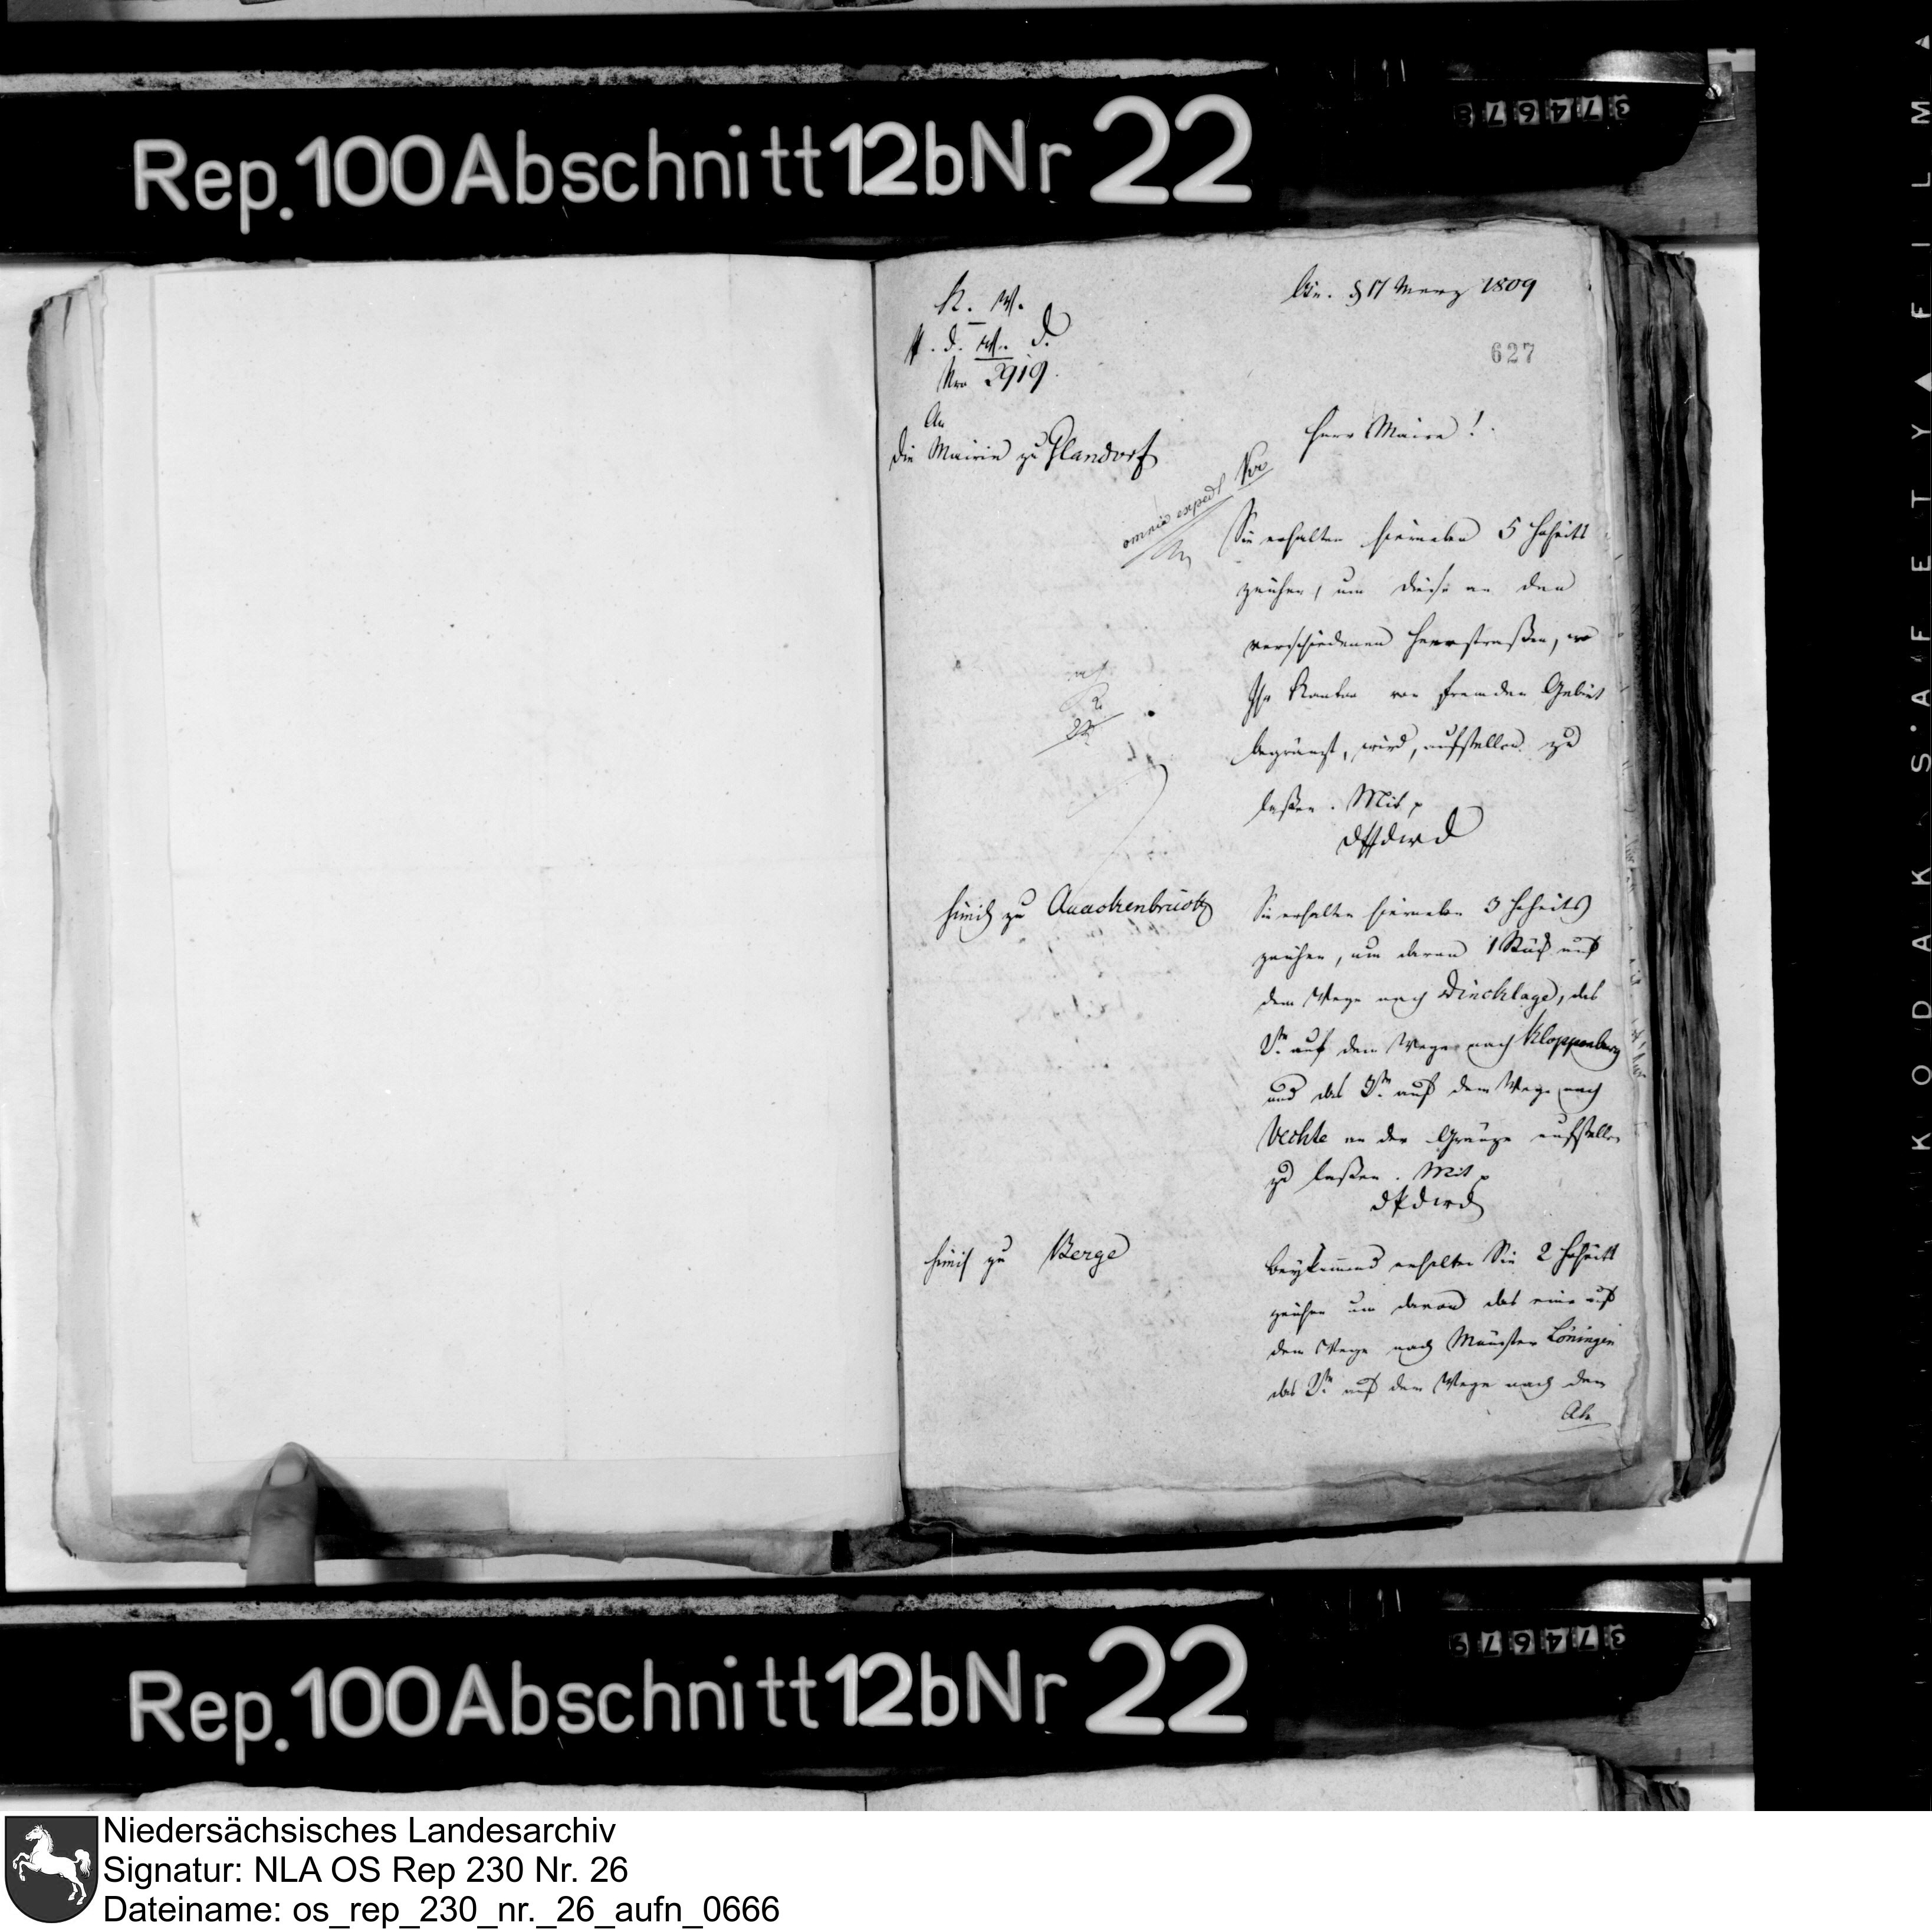 Rep. 100 Abschnitt 12b Nr 22
374678
K. W.
P. d. W. D.
Nro 2919.
17 Merz 1809
627
An
die Mairie zu Glandorf
Herr Maire!
omnia exped
Sie erhalten hierneben 5 Hoheits
zeichen, um diese an den
verschiedenen Heerstraßen, wo
Ihr Kanton von fremden Gebiet
begränzt, wird, aufstellen zu
laßen. Mit p
simil zu Quackenbrück
Sie erhalten hierneben 3 Hoheits
zeichen, um davon 1 Stück auf
dem Wege nach Dincklage, das
2te auf dem Wege nach Kloppenburg
und das 3te auf dem Wege nach
Vechte an der Gränze aufstellen
zu laßen. Mit p
simil zu Berge
Beykommend erhalten Sie 2 Hoheits
zeichen um davon das eine auf
dem Wege nach Münster Löningen
das 2te auf dem Wege nach dem
Rep. 100 Abschnitt 12b Nr 22
374679
KODAK SAFETY FILM
Niedersächsisches Landesarchiv
Signatur: NLA OS Rep 230 Nr. 26
Dateiname: os_rep_230_nr._26_aufn_0666